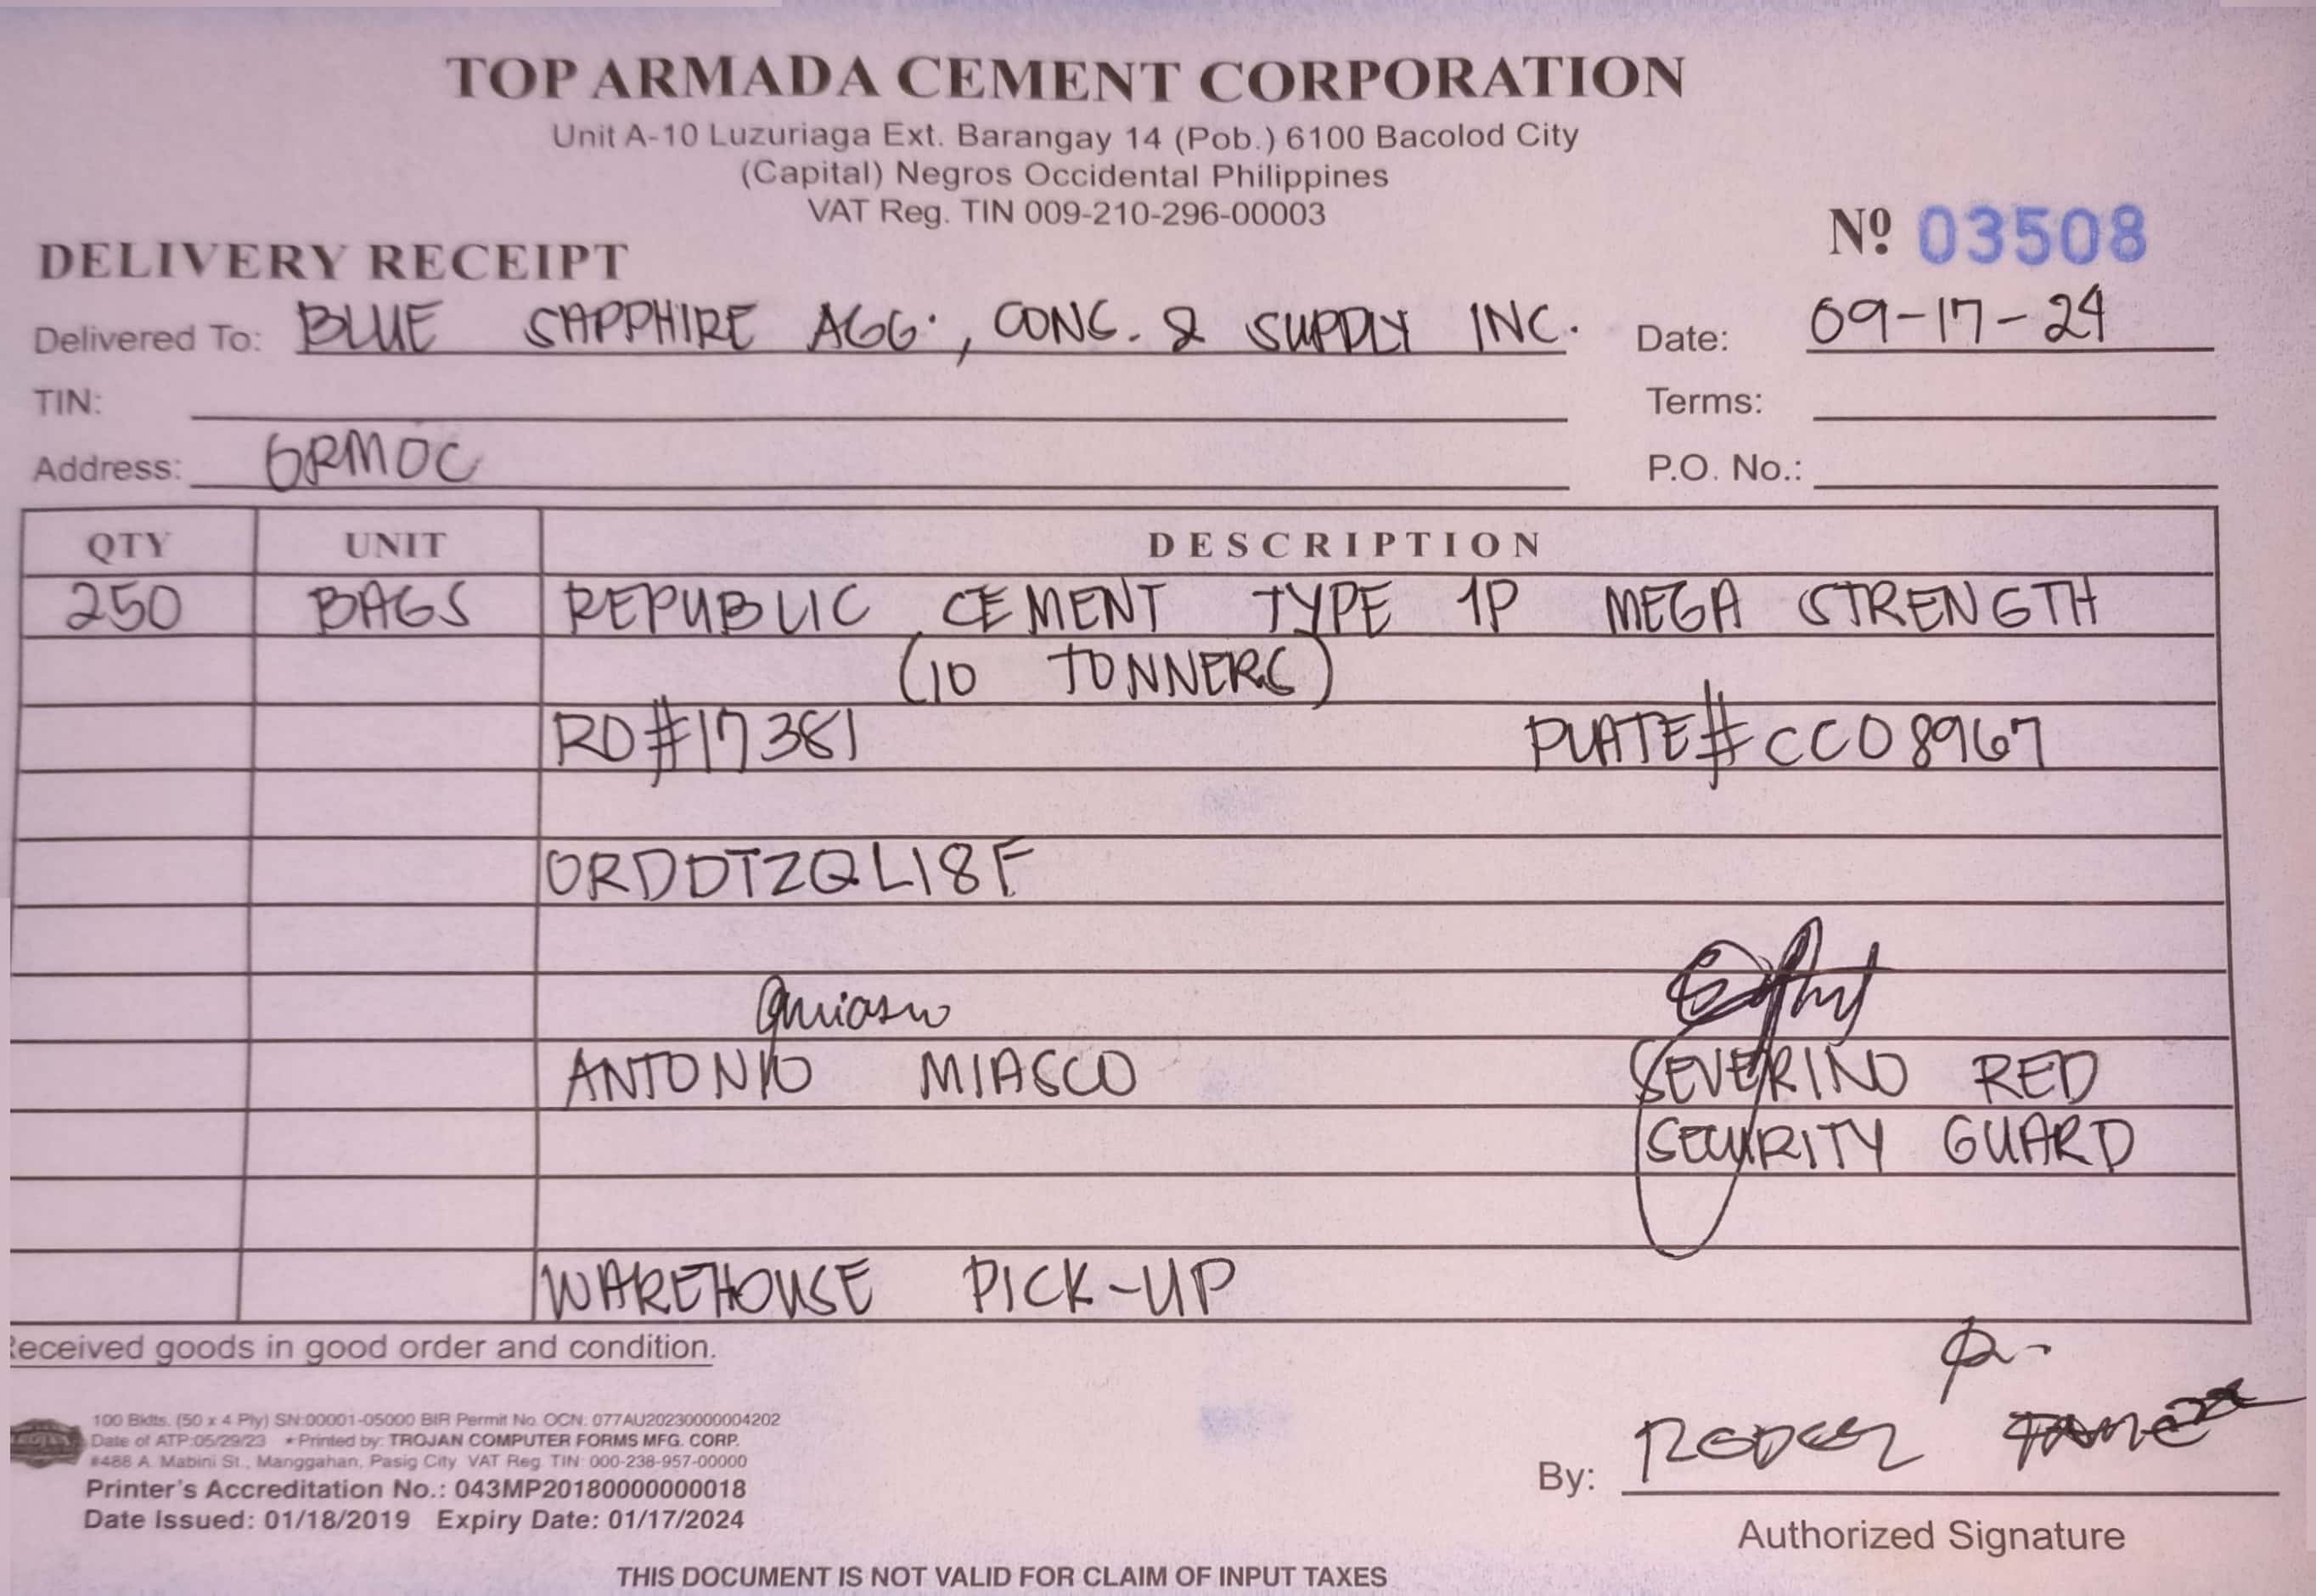 TOP ARMADA CEMENT CORPORATION
Unit A-10 Luzuriaga Ext. Barangay 14 (Pob.) 6100 Bacolod City
(Capital) Negros Occidental Philippines
VAT Reg. TIN 009-210-296-00003
Nº 03508
DELIVERY RECEIPT
Delivered To: BLUE SAPPHIRE AGG., CONC. & SUPPLY INC. Date: 09-17-24
TIN: Terms:
Address: ORMOC P.O. No.:
QTY UNIT DESCRIPTION
250 BAGS REPUBLIC CEMENT TYPE 1P MEGA STRENGTH
(10 TONNERS)
RO#17381 PLATE# CCO8967
ORDDTZQL18F
ANTONIO MIASCO SEVERINO RED
SECURITY GUARD
WAREHOUSE PICK-UP
eceived goods in good order and condition.
100 Bklts. (50 x 4 Ply) SN:00001-05000 BIR Permit No. OCN: 077AU20230000004202
Date of ATP:05/29/23 * Printed by: TROJAN COMPUTER FORMS MFG. CORP.
#488 A. Mabini St., Manggahan, Pasig City VAT Reg. TIN: 000-238-957-00000
Printer's Accreditation No.: 043MP20180000000018
Date Issued: 01/18/2019 Expiry Date: 01/17/2024
By:
Authorized Signature
THIS DOCUMENT IS NOT VALID FOR CLAIM OF INPUT TAXES